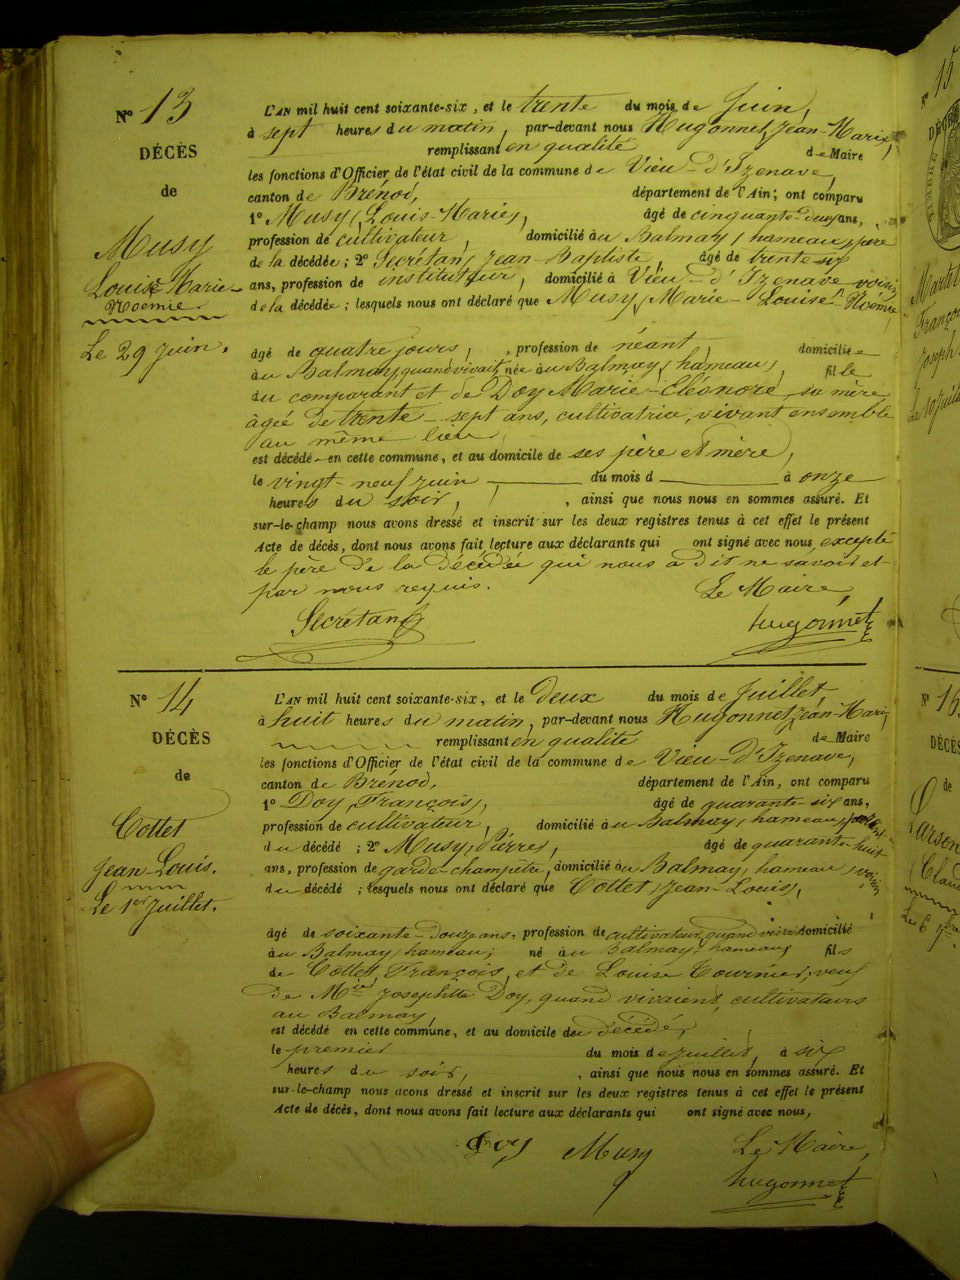 N° 13
DÉCÈS
de
Musy
Louise Marie-
Noémie
Le 29 Juin.
L'AN mil huit cent soixante-six, et le trente du mois de Juin,
à sept heures du matin, par-devant nous Hugonnet, Jean-Marie,
remplissant en qualité de Maire
les fonctions d'Officier de l'état civil de la commune de Vieu-d'Izenave,
canton de Brénod, département de l'Ain; ont comparu
1° Musy, (Louis-Marie), âgé de cinquante-deux ans,
profession de cultivateur, domicilié au Balmay, hameau, père
de la décédée; 2° Secrétan, Jean-Baptiste, âgé de trente-six
ans, profession de instituteur, domicilié à Vieu-d'Izenave voisin
de la décédée; lesquels nous ont déclaré que Musy, Marie-Louise-Noémie,
âgé de quatre jours, profession de néant, domicilié
au Balmay, quand vivait, née au Balmay, hameau, fille
du comparant et de Doy Marie-Eléonore, sa mère
âgée de trente-sept ans, cultivatrice, vivant ensemble
au même lieu,
est décédé en cette commune, et au domicile de ses père et mère,
le vingt-neuf juin du mois d à onze
heures du soir, , ainsi que nous nous en sommes assuré. Et
sur-le-champ nous avons dressé et inscrit sur les deux registres tenus à cet effet le présent
Acte de décès, dont nous avons fait lecture aux déclarants qui ont signé avec nous, excepté
le père de la décédée qui nous a dit ne savoir et
par nous requis. Le Maire,
Secrétan Hugonnet
N° 14
DÉCÈS
de
Cottet
Jean-Louis.
Le 1er Juillet.
L'AN mil huit cent soixante-six, et le deux du mois de Juillet,
à huit heures du matin, par-devant nous Hugonnet, Jean-Marie,
remplissant en qualité de Maire
les fonctions d'Officier de l'état civil de la commune de Vieu-d'Izenave,
canton de Brénod, département de l'Ain, ont comparu
1° Doy, François, âgé de quarante-six ans,
profession de cultivateur, domicilié au Balmay, hameau,
du décédé; 2° Musy, Pierre, âgé de quarante-huit
ans, profession de garde-champêtre, domicilié au Balmay, hameau, voisin
du décédé; lesquels nous ont déclaré que Cottet, Jean-Louis,
âgé de soixante-douze ans, profession de cultivateur, quand vivait domicilié
au Balmay, hameau; né au Balmay, hameau, fils
de Cottet, François, et de Louise Tournier, veuf
de Mie Josephtte Doy, quand vivaient, cultivateurs
au Balmay,
est décédé en cette commune, et au domicile du décédé,
le premier du mois de juillet, à six
heures du soir, , ainsi que nous nous en sommes assuré. Et
sur-le-champ nous avons dressé et inscrit sur les deux registres tenus à cet effet le présent
Acte de décès, dont nous avons fait lecture aux déclarants qui ont signé avec nous,
Doy Musy Le Maire,
Hugonnet
N° 15
DÉCÈS
TIMBRE
Joseph
Le 10 juillet
N° 16
DÉCÈS
de